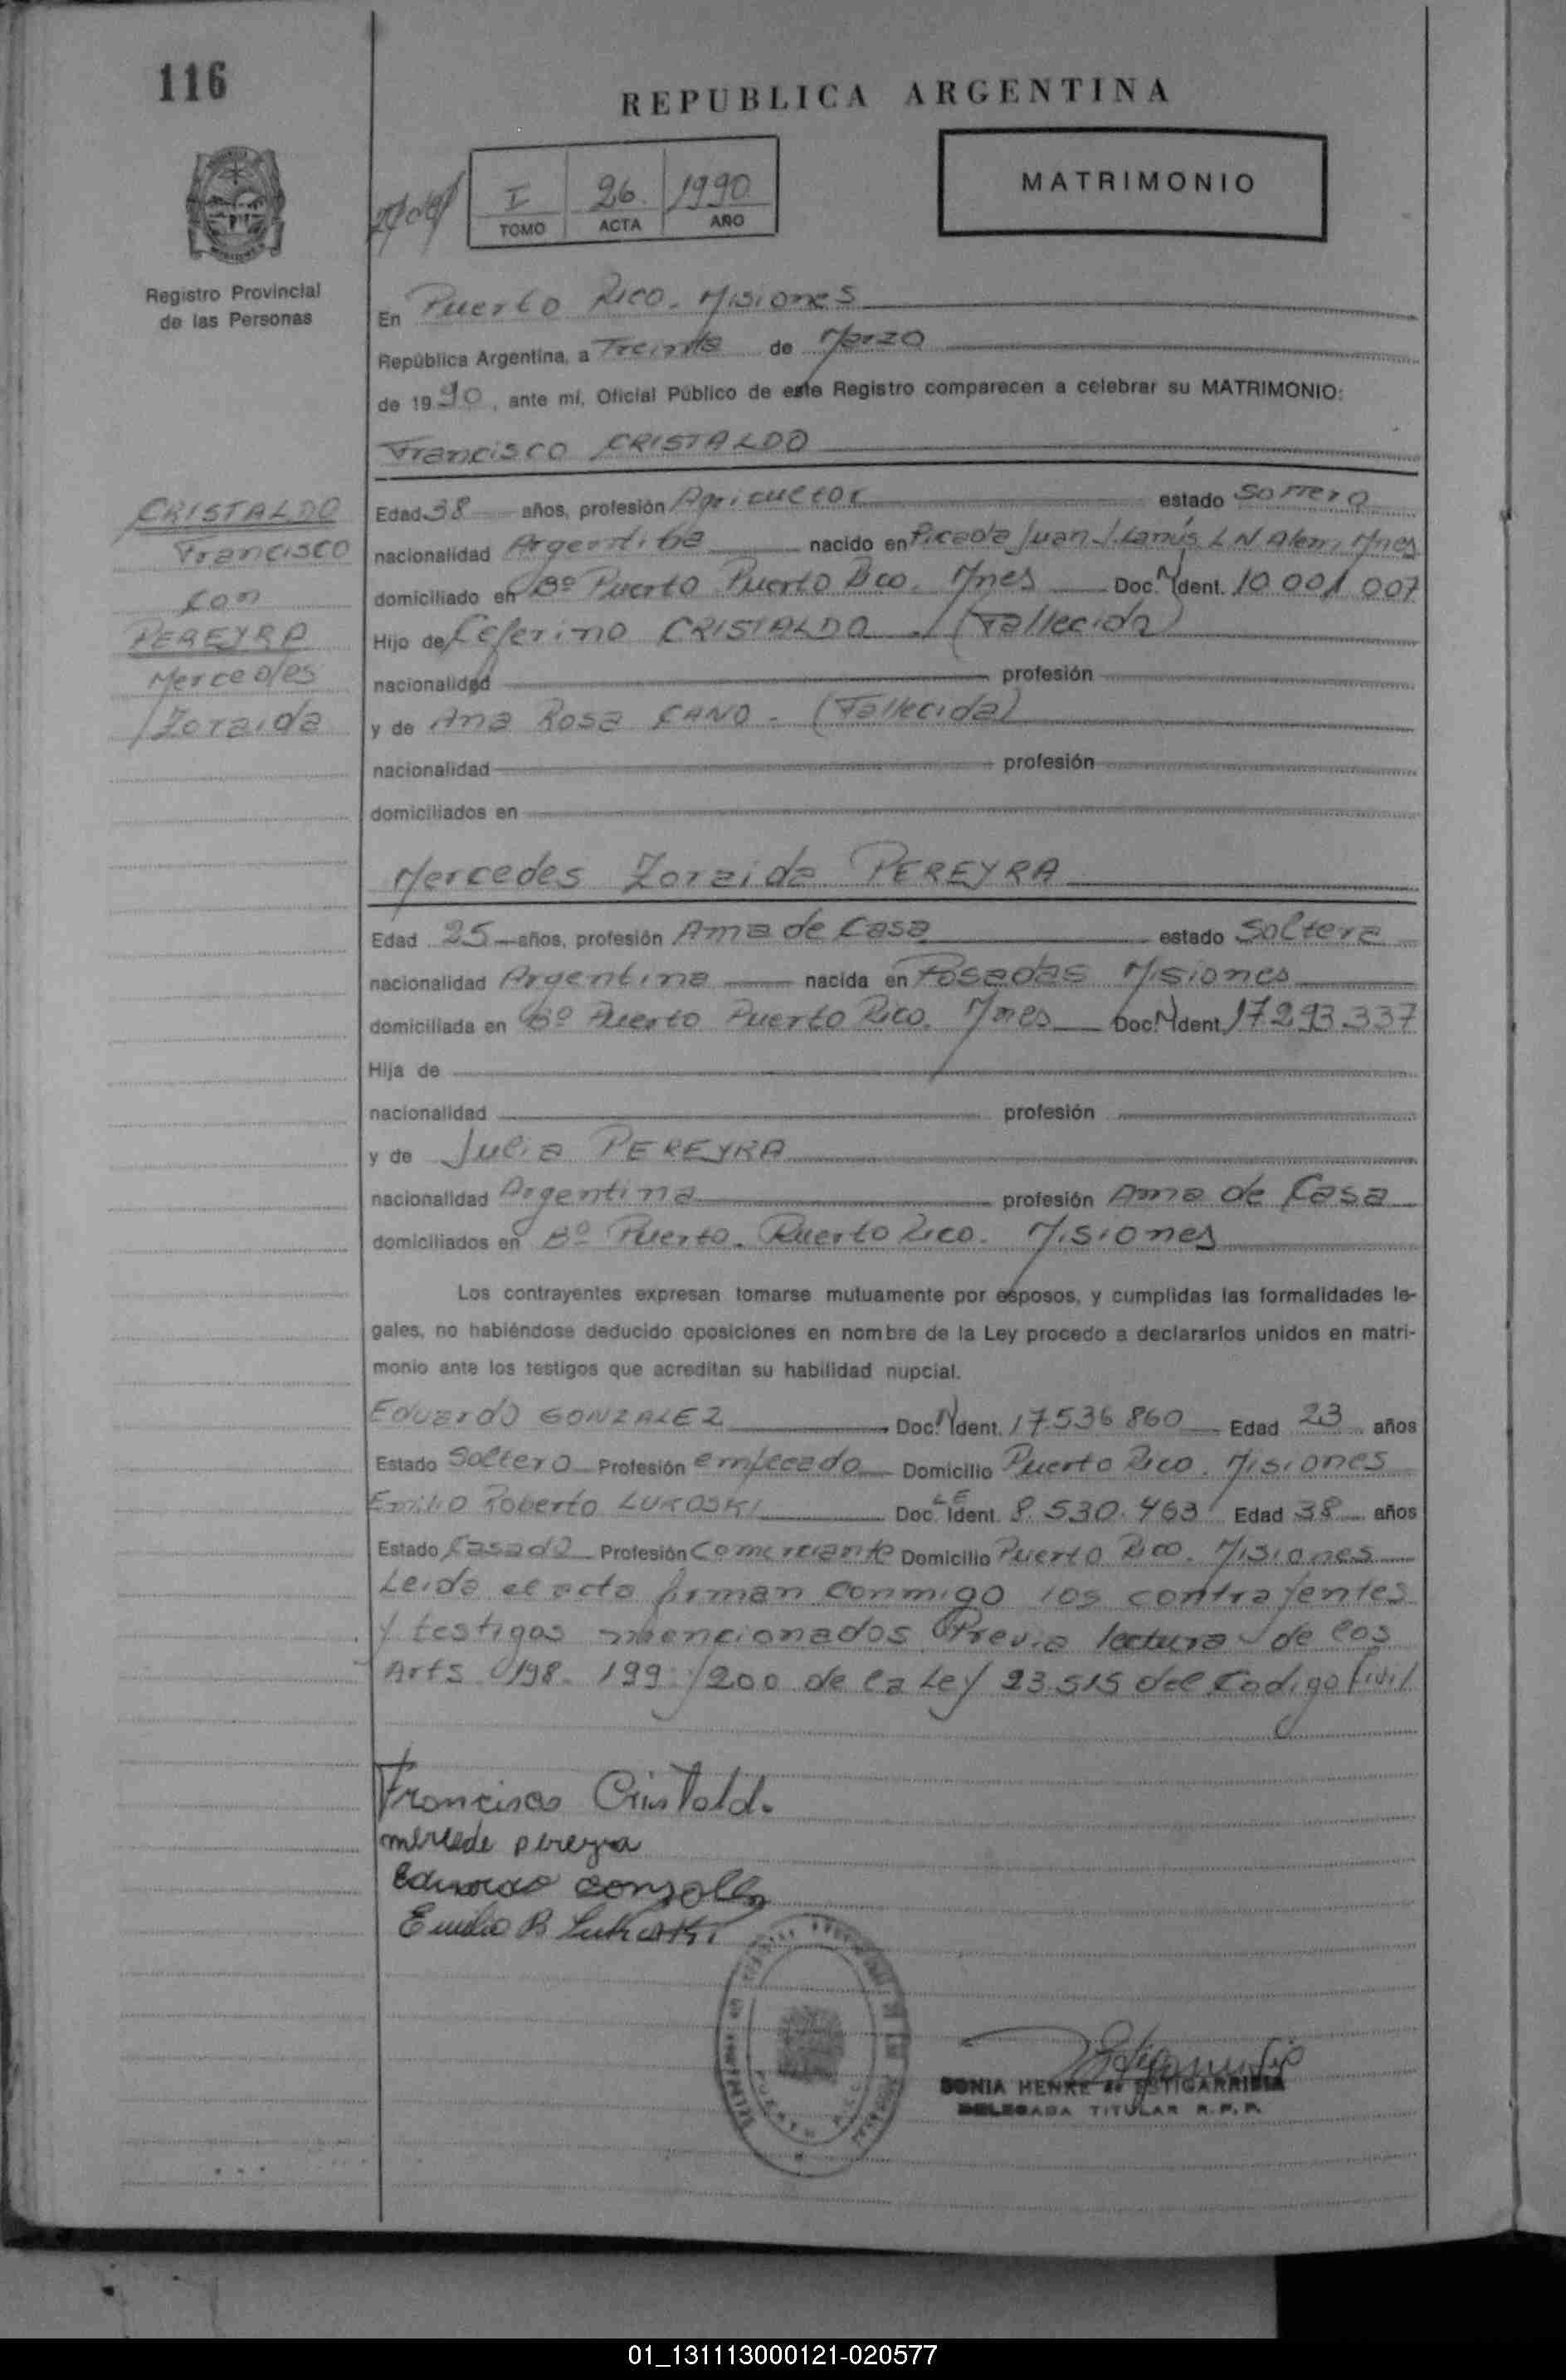 116
REPUBLICA ARGENTINA
I 26 1990
TOMO ACTA AÑO
MATRIMONIO
Registro Provincial
de las Personas
En Puerto Rico. Misiones
República Argentina, a Treinta de Marzo
de 1990, ante mí, Oficial Público de este Registro comparecen a celebrar su MATRIMONIO:
Francisco CRISTALDO
CRISTALDO
Francisco
con
PEREYRA
Mercedes
Zoraida
Edad 38 años, profesión Agricultor estado Soltero
nacionalidad Argentina nacido en Picada Juan J. Lanús L N Alem, Mnes
domiciliado en Bº Puerto Puerto Rico. Mnes Doc. N Ident. 10 001 007
Hijo de Ceferino CRISTALDO (Fallecido)
nacionalidad profesión
y de Ana Rosa CANO - (Fallecida)
nacionalidad profesión
domiciliados en
Mercedes Zoraida PEREYRA
Edad 25 años, profesión Ama de Casa estado Soltera
nacionalidad Argentina nacida en Posadas Misiones
domiciliada en Bº Puerto Puerto Rico. Mnes Doc. N Ident. 17.293.337
Hija de
nacionalidad profesión
y de Julia PEREYRA
nacionalidad Argentina profesión Ama de Casa
domiciliados en Bº Puerto. Puerto Rico. Misiones
Los contrayentes expresan tomarse mutuamente por esposos, y cumplidas las formalidades le-
gales, no habiéndose deducido oposiciones en nombre de la Ley procedo a declararlos unidos en matri-
monio ante los testigos que acreditan su habilidad nupcial.
Eduardo GONZALEZ Doc. N Ident. 17.536 860 Edad 23 años
Estado Soltero Profesión empleado Domicilio Puerto Rico. Misiones
Emilio Roberto LUKOSKI Doc. LE Ident. 8.530.463 Edad 38 años
Estado Casado Profesión Comerciante Domicilio Puerto Rico. Misiones
Leida el acta firman conmigo los contrayentes
y testigos mencionados Previa lectura de los
Arts 198. 199 y 200 de la Ley 23.515 del Codigo Civil
Francisco Cristaldo
mersede pereyra
Eduardo Gonzalez
Emilio R Lukoski
PUERTO RICO
SONIA HENKE de ESTIGARRIBIA
DELEGADA TITULAR R.P.P.
01_131113000121-020577